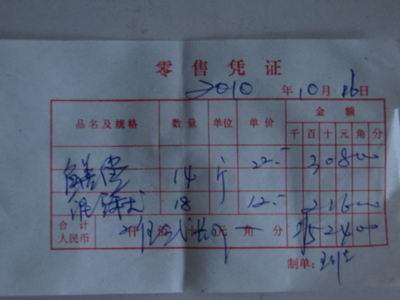 零售凭证
2010 年 10 月 16 日
品名及规格 数量 单位 单价 金额
千 百 十 元 角 分
鳝 14 斤 22.- 3 0 8 0 0
18 12.- 2 1 6 0 0
合计人民币 仟 佰 拾 元 角 分 5 2 4 0 0
制单: